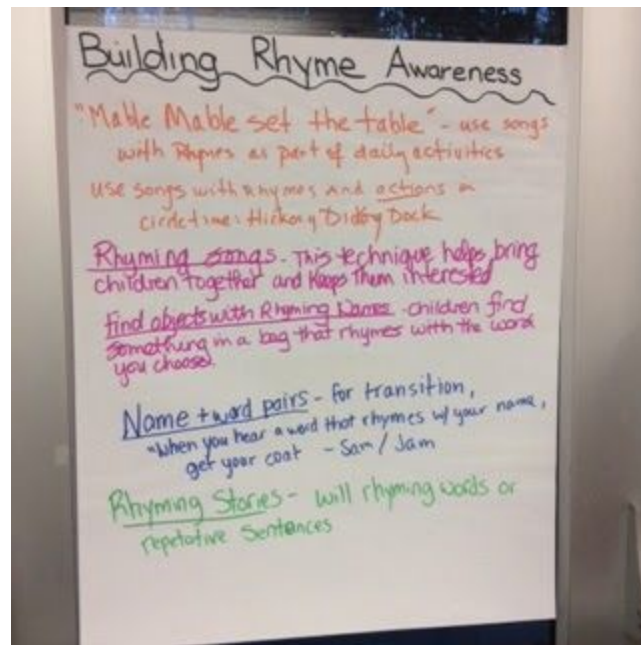 Building Rhyme Awareness
"Mable Mable set the table" - use songs
with Rhymes as part of daily activities
use songs with rhymes and actions in
circle time: Hickory Dickory Dock
Rhyming songs - This technique helps bring
children together and keeps them interested
find objects with Rhyming Names - children find
something in a bag that rhymes with the word
you choose.
Name + word pairs - for transition,
"when you hear a word that rhymes w/ your name,
get your coat - Sam / Jam
Rhyming Stories - will rhyming words or
repetative sentences